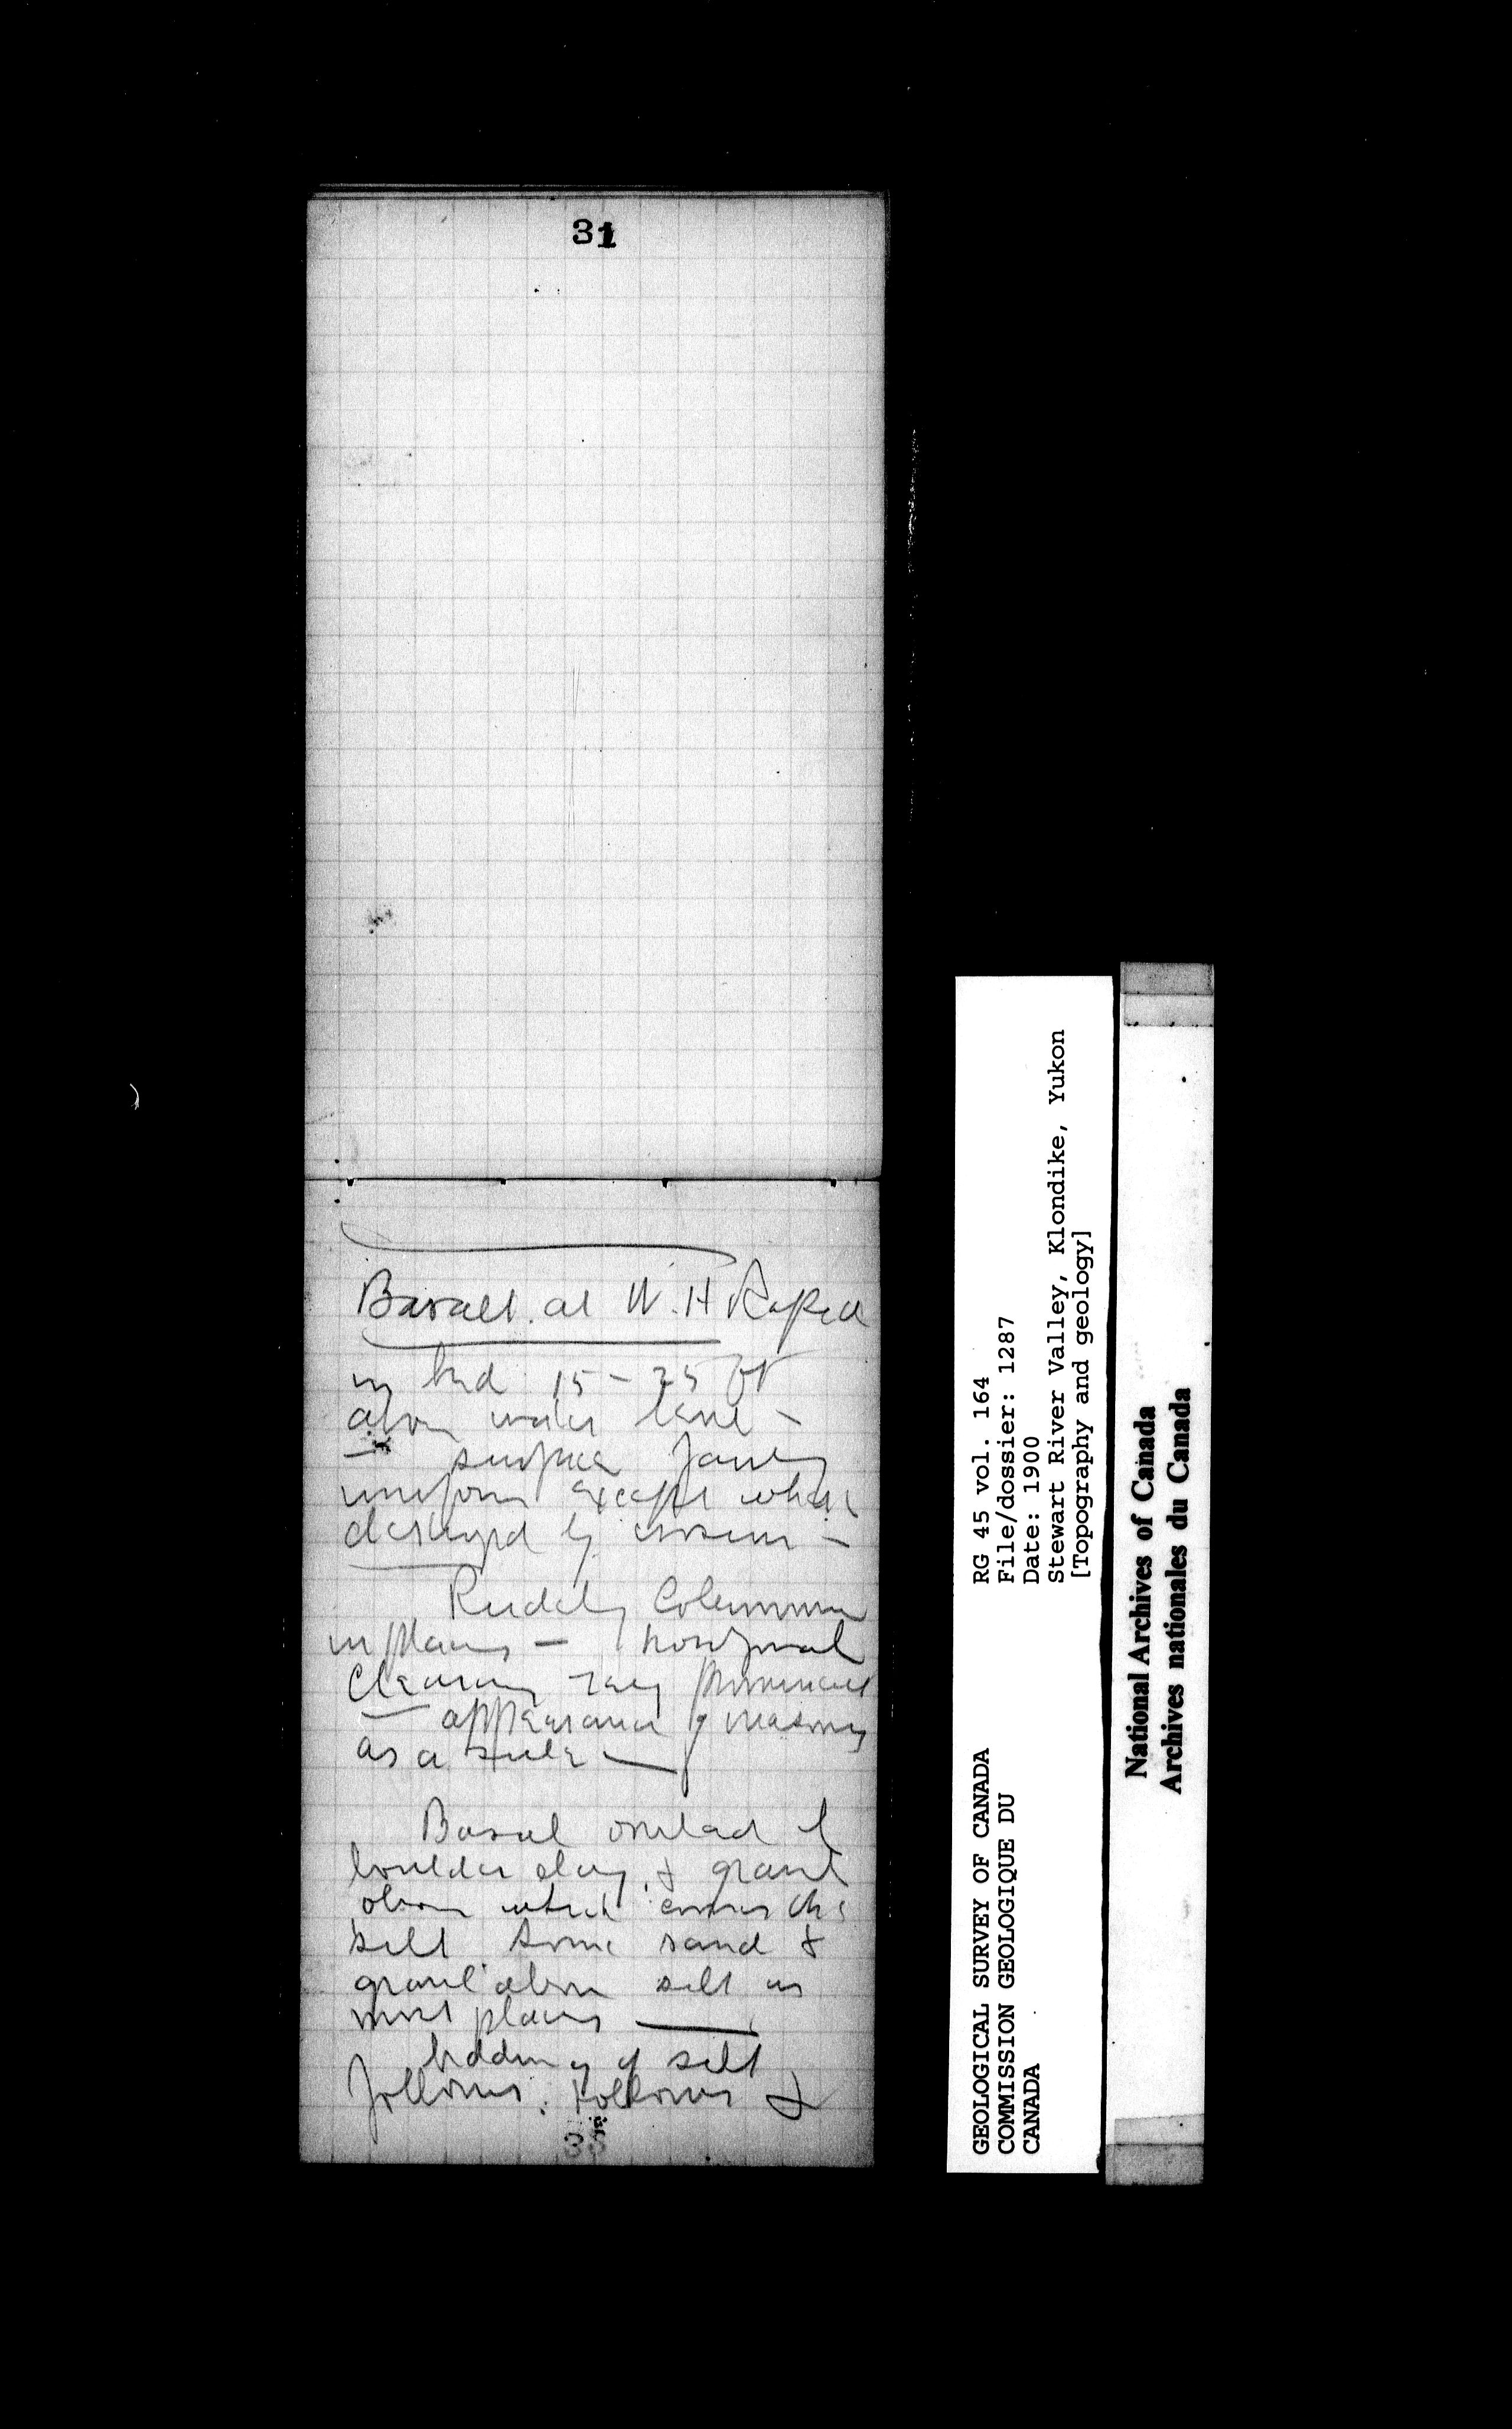 31
Basalt at W. H. Rapid
in bed 15 - 25 ft
above water level -
- surface fairly
uniform except where
destroyed by erosion -
Rudely Columnar
in places - horizontal
Cleavage very prominent
- appearance of masonry
as a rule -
Basal overlaid by
boulder clay & gravel
above which comes the
silt some sand &
gravel above silt in
most places
bedding of silt
follows hollows &
GEOLOGICAL SURVEY OF CANADA
COMMISSION GEOLOGIQUE DU
CANADA
RG 45 vol. 164
File/dossier: 1287
Date: 1900
Stewart River Valley, Klondike, Yukon
[Topography and geology]
National Archives of Canada
Archives nationales du Canada